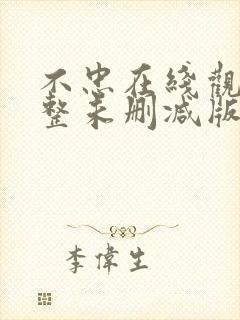 不忠在綫觀
整未删减版
李偉生